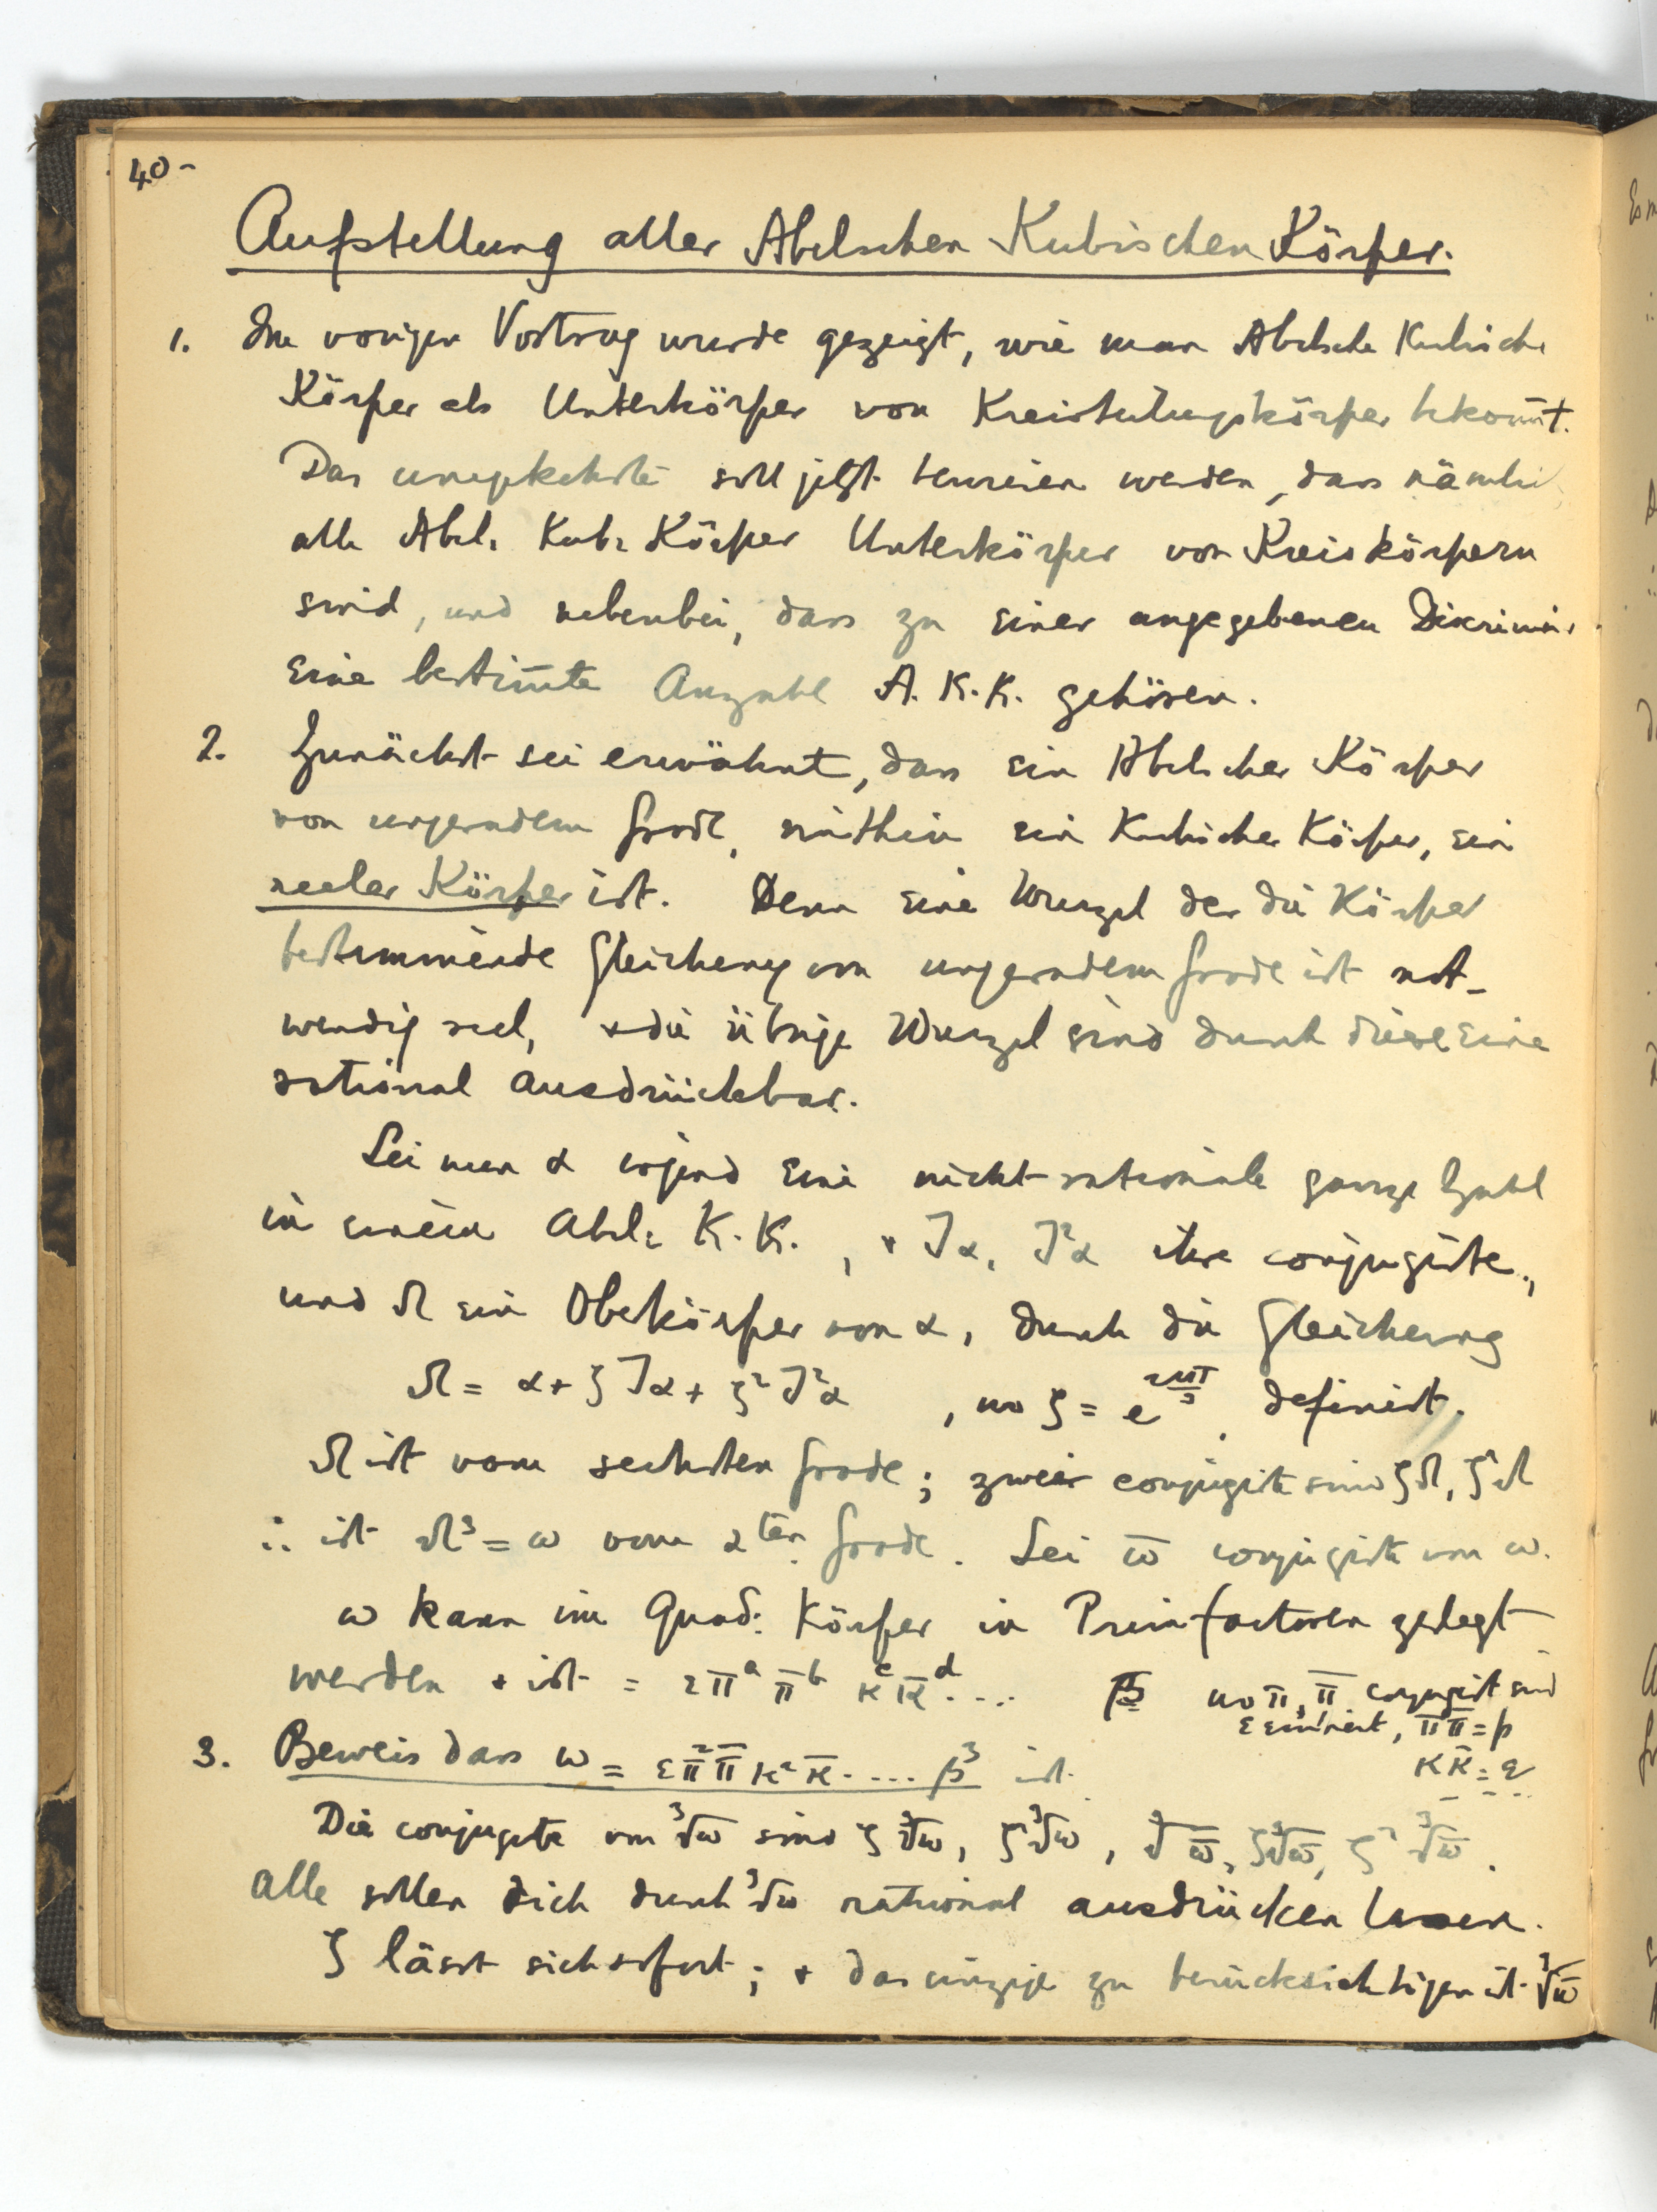 40-
Aufstellung aller Abelschen Kubischen Körper.
1. Im vorigen Vortrag wurde gezeigt, wie man Abelsche Kubische
Körper als Unterkörper von Kreisteilungskörper bekom̅t.
Das umgekehrte soll jetzt bewiesen werden, dass nämli
alle Abel. Kub. Körper Unterkörper von Kreiskörpern
sind, und nebenbei, dass zu einer angegebenen Diskrimin
eine bestim̅te Anzahl A.K.K. gehören.
2. Zunächst sei erwähnt, dass ein Abelscher Körper
von ungeradem Grade, mithin ein Kubischer Körper, ein
reeler Körper ist. Denn eine Wurzel der die Körper
bestimmende Gleichung von ungeradem Grade ist not-
wendig reel, + die übrige Wurzel sind durch diese eine
rational ausdrückbar.
Sei nun α irgend eine nicht-rationale ganze Zahl
in einem Abel. K.K., + Jα, J²α ihre conjugierte,
und Ω ein Oberkörper von α, durch die Gleichung
Ω = α + ζJα + ζ²J²α , wo ζ = e^{2πi/3} definiert.
Ω ist vom sechsten Grade; zwei conjugierte sind ζΩ, ζ²Ω
∴ ist Ω³ = ω vom 2ten Grade. Sei ω̅ conjugierte von ω.
ω kann im Quad. Körper in Primfactoren zerlegt
werden + ist = επ^a π̅^b κ^c κ̅^d .... wo π, π̅ conjugiert sind
ε einheit, ππ̅ = p
κκ̅ = q
3. Beweis dass ω = επ²π̅κ²κ̅ .... β³ ist.
Die conjugierte von ³√ω sind ζ³√ω, ζ²³√ω, ³√ω̅, ζ³√ω̅, ζ²³√ω̅.
Alle sollen sich durch ³√ω rational ausdrücken lassen.
ζ lässt sich sofort; + das einzige zu berücksichtigen ist ³√ω̅